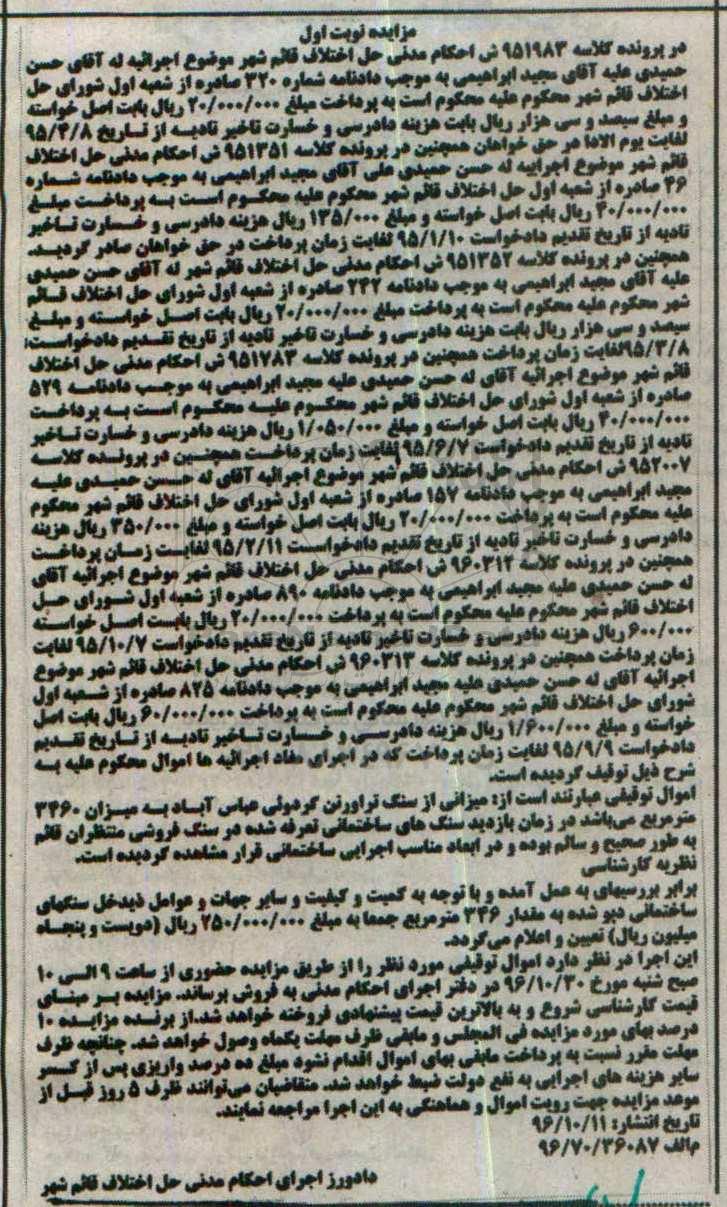 مزایده نوبت اول
در پرونده کلاسه ۹۵۱۹۸۳ ش احکام مدنی حل اختلاف قائم شهر موضوع اجرائیه له آقای حسن
حمیدی علیه آقای مجید ابراهیمی به موجب دادنامه شماره ۳۲۰ صادره از شعبه اول شورای حل
اختلاف قائم شهر محکوم علیه محکوم است به پرداخت مبلغ ۲۰/۰۰۰/۰۰۰ ریال بابت اصل خواسته
و مبلغ سیصد و سی هزار ریال بابت هزینه دادرسی و خسارت تاخیر تادیه از تاریخ ۹۵/۴/۸
لغایت یوم الادا در حق خواهان همچنین در پرونده کلاسه ۹۵۱۳۵۱ ش احکام مدنی حل اختلاف
قائم شهر موضوع اجراییه له حسن حمیدی علی آقای مجید ابراهیمی به موجب دادنامه شماره
۴۶ صادره از شعبه اول حل اختلاف قائم شهر محکوم علیه محکوم است به پرداخت مبلغ
۴۰/۰۰۰/۰۰۰ ریال بابت اصل خواسته و مبلغ ۱۳۵/۰۰۰ ریال هزینه دادرسی و خسارت تاخیر
تادیه از تاریخ تقدیم دادخواست ۹۵/۱/۱۰ لغایت زمان پرداخت در حق خواهان صادر گردید.
همچنین در پرونده کلاسه ۹۵۱۳۵۲ ش احکام مدنی حل اختلاف قائم شهر له آقای حسن حمیدی
علیه آقای مجید ابراهیمی به موجب دادنامه ۲۴۲ صادره از شعبه اول شورای حل اختلاف قائم
شهر محکوم علیه محکوم است به پرداخت مبلغ ۲۰/۰۰۰/۰۰۰ ریال بابت اصل خواسته و مبلغ
سیصد و سی هزار ریال بابت هزینه دادرسی و خسارت تاخیر تادیه از تاریخ تقدیم دادخواست:
۹۵/۳/۸لغایت زمان پرداخت همچنین در پرونده کلاسه ۹۵۱۷۸۳ ش احکام مدنی حل اختلاف
قائم شهر موضوع اجرائیه آقای له حسن حمیدی علیه مجید ابراهیمی به موجب دادنامه ۵۲۹
صادره از شعبه اول شورای حل اختلاف قائم شهر محکوم علیه محکوم است به پرداخت
۴۰/۰۰۰/۰۰۰ ریال بابت اصل خواسته و مبلغ ۱/۰۵۰/۰۰۰ ریال هزینه دادرسی و خسارت تاخیر
تادیه از تاریخ تقدیم دادخواست ۹۵/۶/۷ لغایت زمان پرداخت همچنین در پرونده کلاسه
۹۵۲۰۰۷ ش احکام مدنی حل اختلاف قائم شهر موضوع اجرائیه آقای له حسن حمیدی علیه
مجید ابراهیمی به موجب دادنامه ۱۵۷ صادره از شعبه اول شورای حل اختلاف قائم شهر محکوم
علیه محکوم است به پرداخت ۲۰/۰۰۰/۰۰۰ ریال بابت اصل خواسته و مبلغ ۳۵۰/۰۰۰ ریال هزینه
دادرسی و خسارت تاخیر تادیه از تاریخ تقدیم دادخواست ۹۵/۲/۱۱ لغایت زمان پرداخت
همچنین در پرونده کلاسه ۹۶۰۳۱۲ ش احکام مدنی حل اختلاف قائم شهر موضوع اجرائیه آقای
له حسن حمیدی علیه مجید ابراهیمی به موجب دادنامه ۸۹۰ صادره از شعبه اول شورای حل
اختلاف قائم شهر محکوم علیه محکوم است به پرداخت ۲۰/۰۰۰/۰۰۰ ریال بابت اصل خواسته
۶۰۰/۰۰۰ ریال هزینه دادرسی و خسارت تاخیر تادیه از تاریخ تقدیم دادخواست ۹۵/۱۰/۷ لغایت
زمان پرداخت همچنین در پرونده کلاسه ۹۶۰۳۱۳ ش احکام مدنی حل اختلاف قائم شهر موضوع
اجرائیه آقای له حسن حمیدی علیه مجید ابراهیمی به موجب دادنامه ۸۲۵ صادره از شعبه اول
شورای حل اختلاف قائم شهر محکوم علیه محکوم است به پرداخت ۶۰/۰۰۰/۰۰۰ ریال بابت اصل
خواسته و مبلغ ۱/۶۰۰/۰۰۰ ریال هزینه دادرسی و خسارت تاخیر تادیه از تاریخ تقدیم
دادخواست ۹۵/۹/۹ لغایت زمان پرداخت که در اجرای مفاد اجرائیه ها اموال محکوم علیه به
شرح ذیل توقیف گردیده است.
اموال توقیفی عبارتند است از: میزانی از سنگ تراورتن گردوئی عباس آباد به میزان ۳۴۶۰
مترمربع می‌باشد در زمان بازدید سنگ های ساختمانی تعرفه شده در سنگ فروشی منتظران قائم
به طور صحیح و سالم بوده و در ابعاد مناسب اجرایی ساختمانی قرار مشاهده گردیده است.
نظریه کارشناسی
برابر بررسیهای به عمل آمده و با توجه به کمیت و کیفیت و سایر جهات و عوامل ذیدخل سنگهای
ساختمانی دپو شده به مقدار ۳۴۶ مترمربع جمعا به مبلغ ۲۵۰/۰۰۰/۰۰۰ ریال (دویست و پنجاه
میلیون ریال) تعیین و اعلام می‌گردد.
این اجرا در نظر دارد اموال توقیفی مورد نظر را از طریق مزایده حضوری از ساعت ۹ الی ۱۰
صبح شنبه مورخ ۹۶/۱۰/۳۰ در دفتر اجرای احکام مدنی به فروش برساند. مزایده بر مبنای
قیمت کارشناسی شروع و به بالاترین قیمت پیشنهادی فروخته خواهد شد.از برنده مزایده ۱۰
درصد بهای مورد مزایده فی المجلس و مابقی ظرف مهلت یکماه وصول خواهد شد. چنانچه ظرف
مهلت مقرر نسبت به پرداخت مابقی بهای اموال اقدام نشود مبلغ ده درصد واریزی پس از کسر
سایر هزینه های اجرایی به نفع دولت ضبط خواهد شد. متقاضیان می‌توانند ظرف ۵ روز قبل از
موعد مزایده جهت رویت اموال و هماهنگی به این اجرا مراجعه نمایند.
تاریخ انتشار: ۹۶/۱۰/۱۱
م‌الف ۹۶/۷۰/۳۶۰۸۷
دادورز اجرای احکام مدنی حل اختلاف قائم شهر